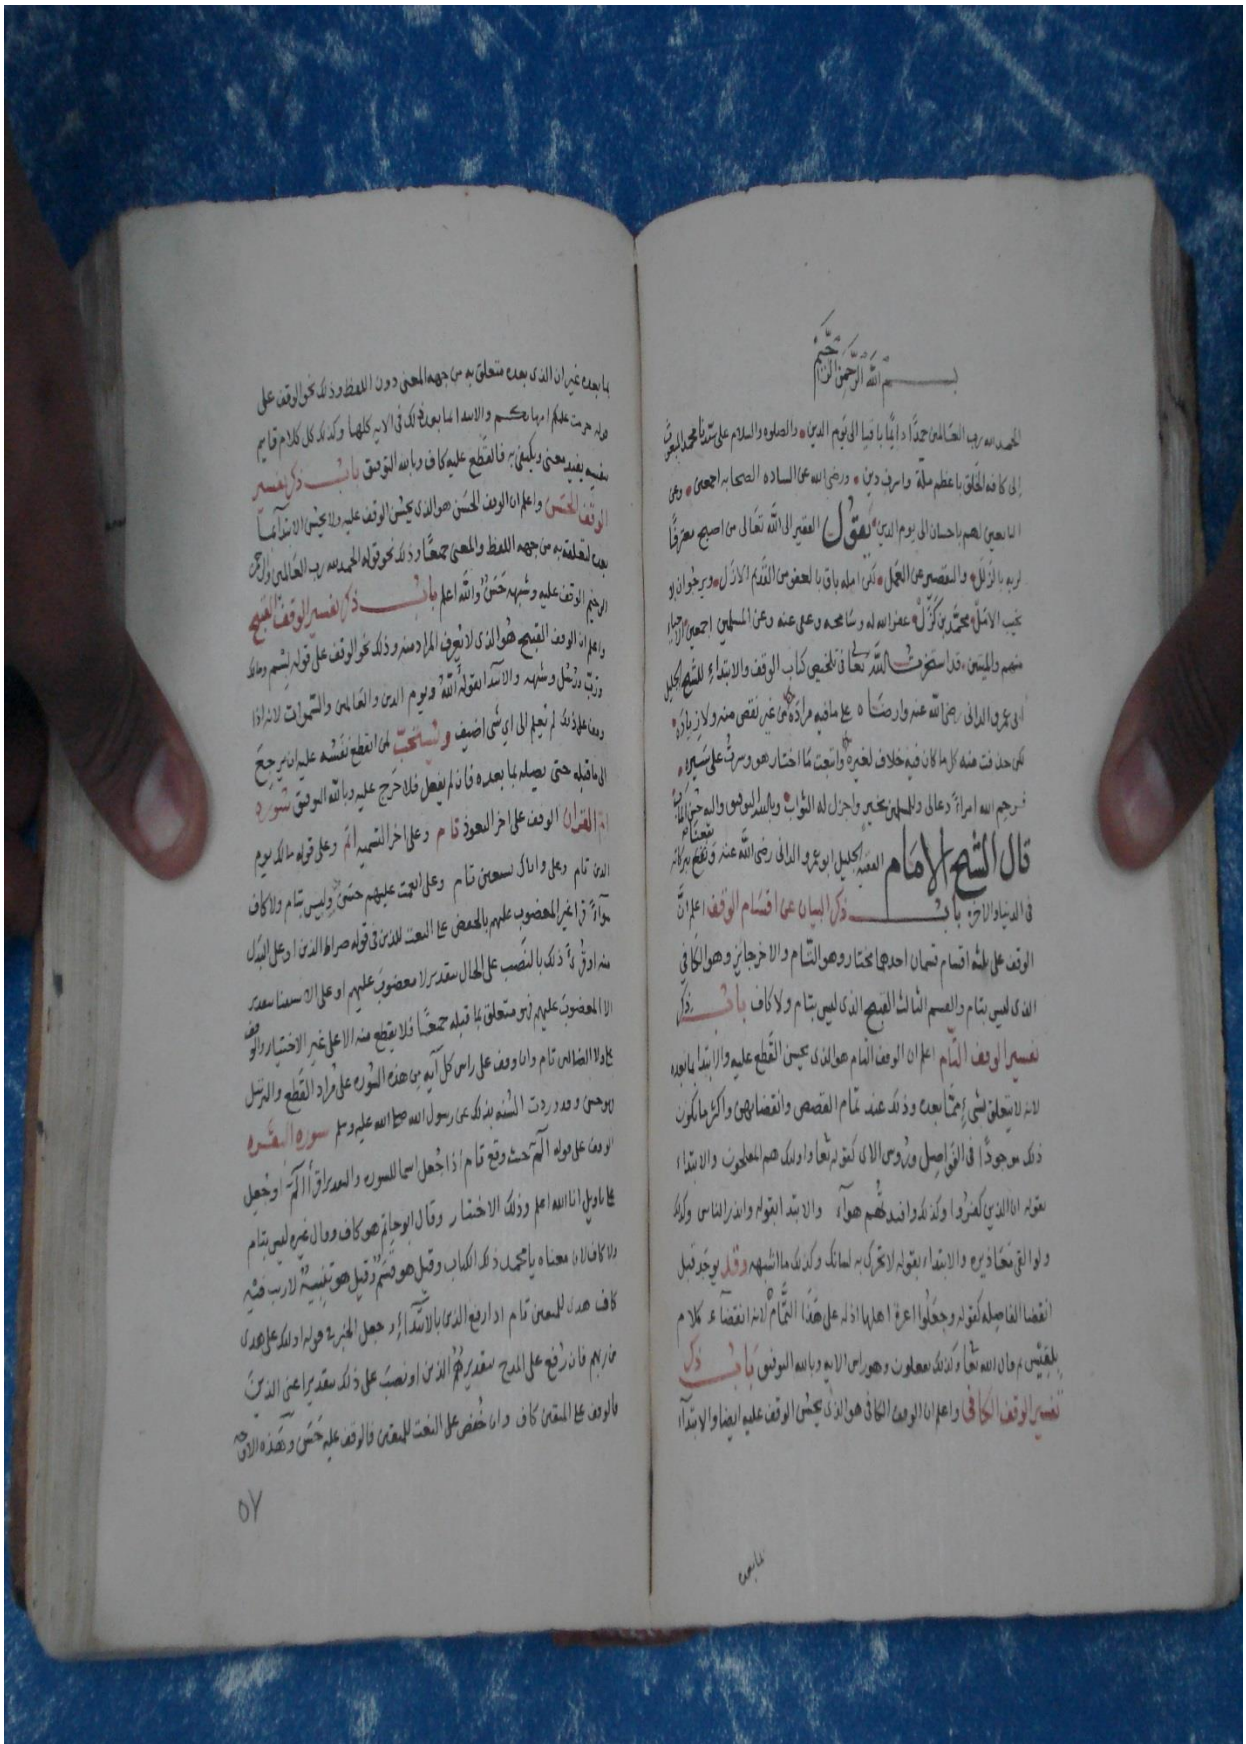 بسم الله الرحمن الرحيم
الحمد لله رب العالمين حمدًا دايمًا باقيا الى يوم الدين والصلوه والسلام على سيدنا محمد المبعوث
الى كافه الخلق باعظم ملة واشرف دين ورضى الله عن الساده الصحابه اجمعين وعن
التابعين لهم باحسان الى يوم الدين يقول الفقير الى الله تعالى من اصبح معترفًا
لربه بالزلل والتقصير عن العمل لكن امله باق بالعفو من القديم الازل ويرجوان لا
يخيب الامل محمد بن كزل عفر الله له وسامحه وعفى عنه وعن المسلمين اجمعين الاحياء
منهم والميتين قد استخرت الله تعا فى تلخيص كتاب الوقف والابتداء للشيخ الجليل
ابى عمرو الدانى رضى الله عنه وارضاه على مافيه مراده من غير نقص منه ولا زيادة
لكن حذفت منه كل ما كان فيه خلاف لغيره واتبعت ما اختار هو وسرت على سيره
فرحم الله امراءً دعالى وللمسلمين بخير واجزل له الثواب وبالله التوفيق واليه حسن المآب
قال الشيخ الامام الفقيه الجليل ابو عمرو الدانى رضى الله عنه ونفعنا ببركاته
فى الدنيا والاخره باب ذكر البيان عن اقسام الوقف اعلم انّ
الوقف على ثلثه اقسام قسمان احدهما مختار وهو التام والاخر جائز وهو الكافي
الذى ليس بتام والقسم الثالث القبيح الذى ليس بتام ولا كاف باب ذكر
تفسير الوقف التام اعلم ان الوقف التام هو الذى يحسن القطع عليه والابتدا بما بعده
لانه لا يتعلق بشى ممّا بعده وذلك عند تمام القصص وانقضايهن واكثر ما يكون
ذلك موجودًا فى الفواصل ورؤس الاى كقوله تعا واوليك هم المفلحون والابتداء
بقوله ان الذين كفروا وكذلك وافيدتهم هوآء والابتدا بقوله وانذر الناس وكذلك
ولو القى معاذيره والابتداء بقوله لا تحرك به لسانك وكذلك ما اشبهه وقد يوجد قبل
انقضا الفاصله كقوله وجعلوا اعزة اهلها اذله على هذا التمام لانه انقضآء كلام
بلقيس ثم قال الله تعا وكذلك يفعلون وهو راس الايه وبالله التوفيق باب ذكر
تفسير الوقف الكافى واعلم ان الوقف الكافى هو الذى يحسن الوقف عليه ايضا والابتدآء
بما بعده
بما بعده غير ان الذى بعده متعلق به من جهه المعنى دون اللفظ وذلك نحو الوقف على
قوله حرمت عليكم امهاتكم والابتدا بما بعد ذلك فى الايه كلها وكذلك كل كلام قايم
بنفسه يفيد معنى ويكتفى به فالقطع عليه كاف وبالله التوفيق باب ذكر تفسير
الوقف الحسن واعلم ان الوقف الحسن هو الذى يحسن الوقف عليه ولا يحسن الابتدآ بما
بعده لتعلقه به من جهه اللفظ والمعنى جمعًا وذلك نحو قوله الحمد لله رب العالمين والرحمن
الرحيم الوقف عليه وشبهه حَسَنٌ والله اعلم باب ذكر تفسير الوقف القبيح
واعلم ان الوقف القبيح هو الذى لا يُعرف المراد منه وذلك نحو الوقف على قوله بسم ومالك
وربّ ورُسُل وشبهه والابتدآ بقوله الله ويوم الدين والعالمين والسموات لانه اذا
وقف على ذلك لم يُعلم الى اي شى اضيف ويستحب لمن انقطع نفسه عليه ان يرجع
الى ما قبله حتى يصله بما بعده فان لم يفعل فلا حرج عليه وبالله التوفيق سورة
ام القران الوقف على اخر التعوذ تام وعلى اخر التسميه اتم وعلى قوله مالك يوم
الدين تام وعلى واياك نستعين تام وعلى انعمت عليهم حسن وليس بتام ولا كاف
سوآءً قرا غير المغضوب عليهم بالخفض على النعت للذين فى قوله صراط الذين او على البدل
منه او قُرئَ ذلك بالنصب على الحال بتقدير لا مغضوب عليهم او على الاستثنا بتقدير
الا المغضوب عليهم فهو متعلق بما قبله جمعًا فلا يقطع منه الا على غير الاختيار والوقف
على ولا الضالين تام وان وقف على راس كل آيه من هذه السوره على مُراد القطع والترتيل
فهو حسن وقد وردت السنه بذلك عن رسول الله صلى الله عليه وسلم سوره البقره
الوقف على قوله الٓمٓ حيث وقع تام اذا جُعل اسما للسوره والتقدير اقرأ الٓمٓ او جُعل
على تاويل انا الله اعلم وذلك الاختيار وقال ابو حاتم هو كاف وقال غيره ليس بتام
ولا كاف لان معناه يا محمد ذلك الكتاب وقيل هو قسم وقيل هو تنبيه لا ريب فيه
كاف هدى للمتقين تام اذا رفع الذين بالابتدآء وجعل الخبر فى قوله اوليك على هدى
من ربهم فان رُفع على المدح بتقدير هُم الذين او نصب على ذلك بتقدير اعنى الذين
فالوقف على المتقين كاف وان خُفض على النعت للمتقين فالوقف عليه حسن وهذه الاوجه
٥٧